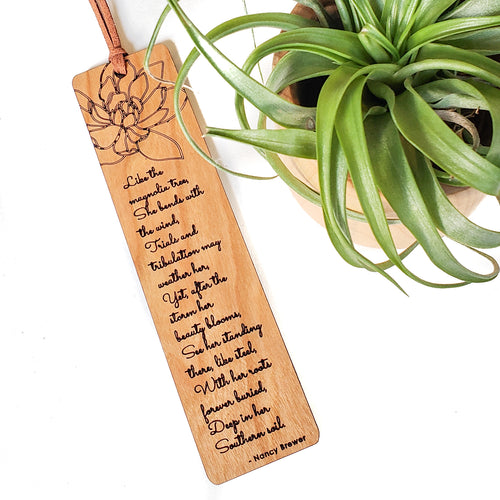 Like the
magnolia tree,
She bends with
the wind,
Trials and
tribulation may
weather her,
Yet, after the
storm her
beauty blooms,
See her standing
there, like steel,
With her roots
forever buried,
Deep in her
Southern soil.
- Nancy Brewer